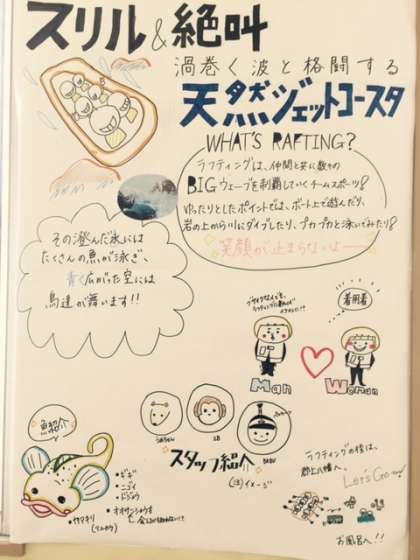 スリル&絶叫
渦巻く波と格闘する
天然ジェットコースタ
WHAT'S RAFTING?
ラフティングは、仲間と共に数々の
BIGウェーブを制覇していくチームスポーツ!
ゆったりとしたポイントでは、ボート上で遊んだり、
岩の上から川にダイブしたり、プカプカと泳いでみたり!
笑顔が止まらないよ――
その澄んだ水には
たくさんの魚が泳ぎ、
青く広がった空には
鳥達が舞います!!
着用着
Man
Woman
魚紹介
スタッフ紹介
(注)イメージ
・ニゴイ
・ドジョウ
・オオサンショウオ
・ヤマキリ
ラフティングの後は、
郡上八幡へ、
Let's Go
お風呂へ!!